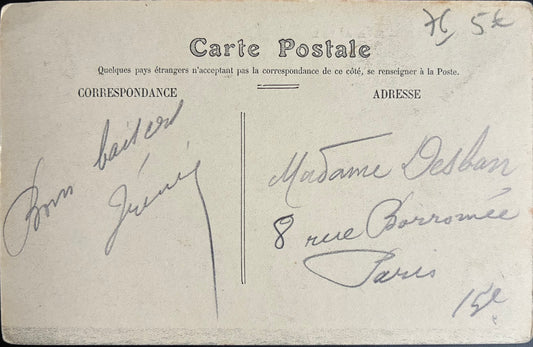 Carte Postale
Quelques pays étrangers n'acceptant pas la correspondance de ce côté, se renseigner à la Poste.
CORRESPONDANCE
ADRESSE
Bons baisers
Madame Desban
8 rue Borromée
Paris
15e